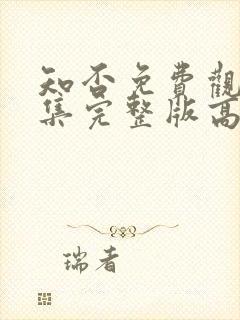 知否免費觀
集完整版高
瑞者